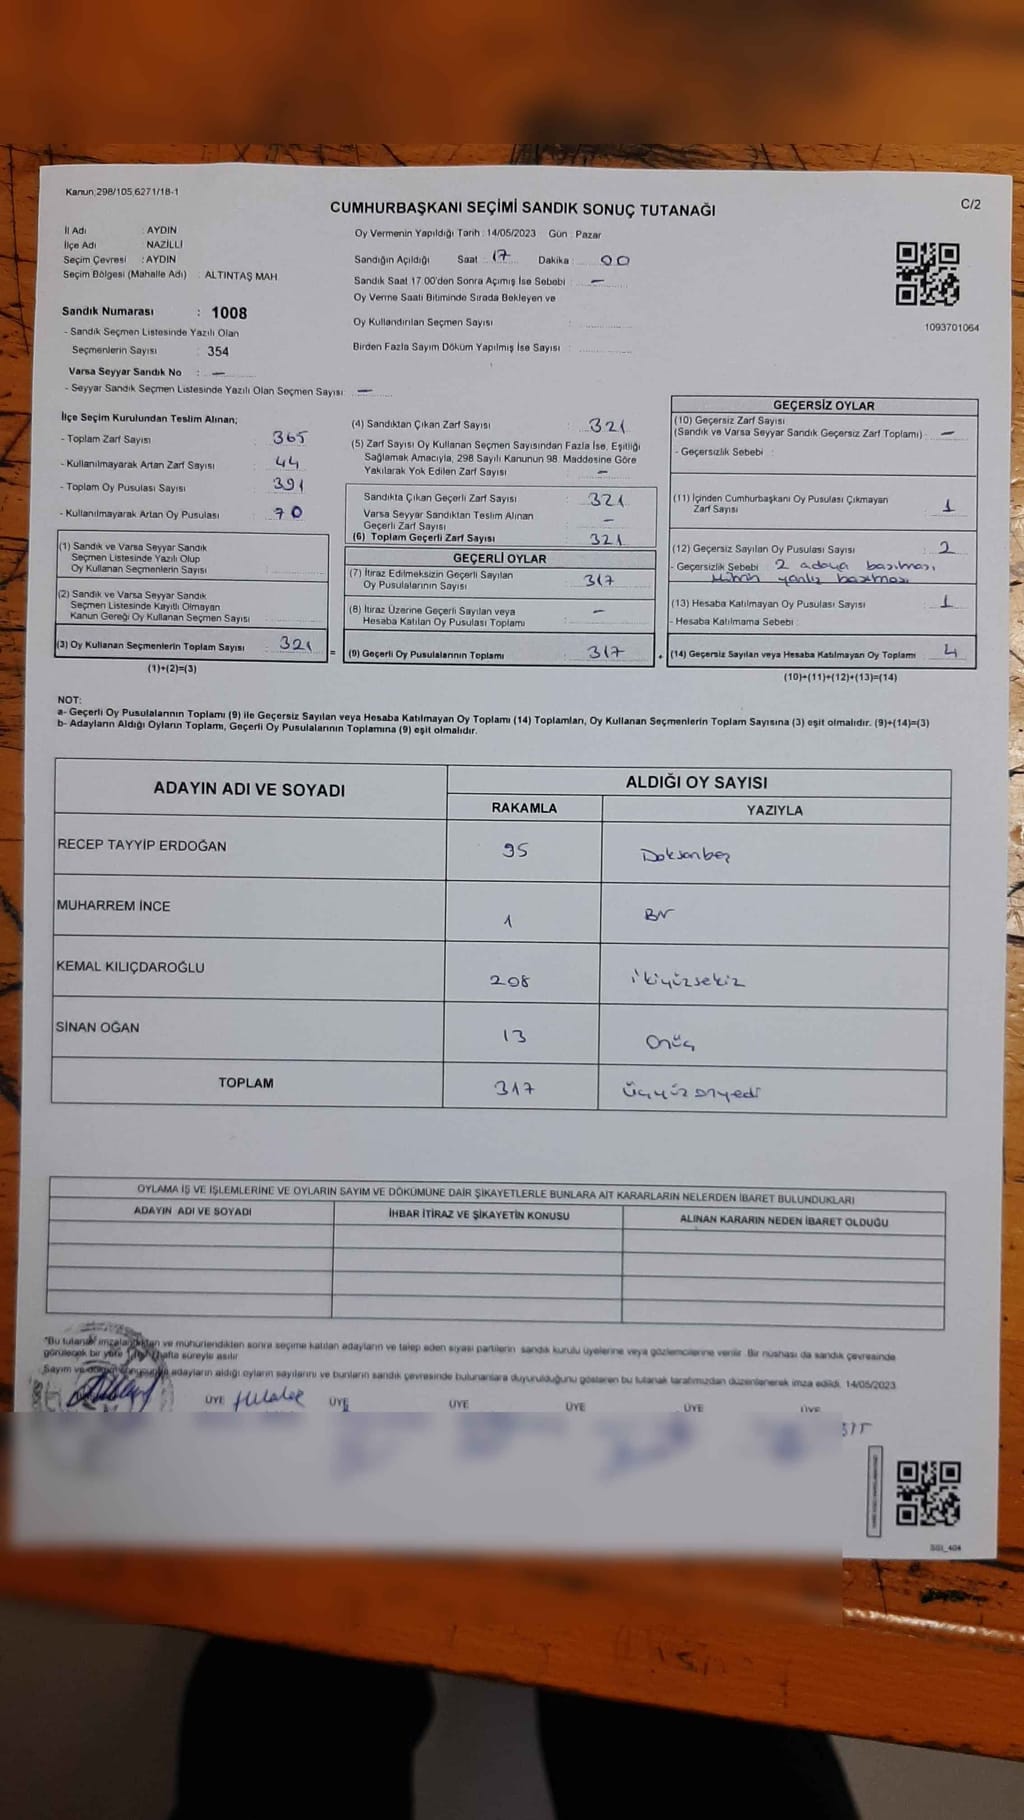 Kanun 298/105,6271/18-1
C/2
CUMHURBAŞKANI SEÇİMİ SANDIK SONUÇ TUTANAĞI
İl Adı : AYDIN
İlçe Adı : NAZİLLİ
Seçim Çevresi : AYDIN
Seçim Bölgesi (Mahalle Adı) : ALTINTAŞ MAH.
Sandık Numarası : 1008
- Sandık Seçmen Listesinde Yazılı Olan
Seçmenlerin Sayısı : 354
Varsa Seyyar Sandık No : —
- Seyyar Sandık Seçmen Listesinde Yazılı Olan Seçmen Sayısı : —
Oy Vermenin Yapıldığı Tarih : 14/05/2023 Gün : Pazar
Sandığın Açıldığı Saat : 17 Dakika : 00
Sandık Saat 17.00'den Sonra Açımış İse Sebebi : —
Oy Verme Saati Bitiminde Sırada Bekleyen ve
Oy Kullandırılan Seçmen Sayısı :
Birden Fazla Sayım Döküm Yapılmış İse Sayısı :
1093701064
İlçe Seçim Kurulundan Teslim Alınan;
- Toplam Zarf Sayısı : 365
- Kullanılmayarak Artan Zarf Sayısı : 44
- Toplam Oy Pusulası Sayısı : 391
- Kullanılmayarak Artan Oy Pusulası : 70
(1) Sandık ve Varsa Seyyar Sandık
Seçmen Listesinde Yazılı Olup
Oy Kullanan Seçmenlerin Sayısı :
(2) Sandık ve Varsa Seyyar Sandık
Seçmen Listesinde Kayıtlı Olmayan
Kanun Gereği Oy Kullanan Seçmen Sayısı :
(3) Oy Kullanan Seçmenlerin Toplam Sayısı : 321
(1)+(2)=(3)
(4) Sandıktan Çıkan Zarf Sayısı : 321
(5) Zarf Sayısı Oy Kullanan Seçmen Sayısından Fazla İse, Eşitliği
Sağlamak Amacıyla, 298 Sayılı Kanunun 98. Maddesine Göre
Yakılarak Yok Edilen Zarf Sayısı : —
Sandıkta Çıkan Geçerli Zarf Sayısı : 321
Varsa Seyyar Sandıktan Teslim Alınan
Geçerli Zarf Sayısı : —
(6) Toplam Geçerli Zarf Sayısı : 321
=
GEÇERLİ OYLAR
(7) İtiraz Edilmeksizin Geçerli Sayılan
Oy Pusulalarının Sayısı : 317
(8) İtiraz Üzerine Geçerli Sayılan veya
Hesaba Katılan Oy Pusulası Toplamı : —
(9) Geçerli Oy Pusulalarının Toplamı : 317
+
GEÇERSİZ OYLAR
(10) Geçersiz Zarf Sayısı
(Sandık ve Varsa Seyyar Sandık Geçersiz Zarf Toplamı) : —
- Geçersizlik Sebebi :
(11) İçinden Cumhurbaşkanı Oy Pusulası Çıkmayan
Zarf Sayısı : 1
(12) Geçersiz Sayılan Oy Pusulası Sayısı : 2
- Geçersizlik Sebebi 2 adaya basılması
Mührün yanlış basılması
(13) Hesaba Katılmayan Oy Pusulası Sayısı : 1
- Hesaba Katılmama Sebebi :
(14) Geçersiz Sayılan veya Hesaba Katılmayan Oy Toplamı : 4
(10)+(11)+(12)+(13)=(14)
NOT:
a- Geçerli Oy Pusulalarının Toplamı (9) ile Geçersiz Sayılan veya Hesaba Katılmayan Oy Toplamı (14) Toplamları, Oy Kullanan Seçmenlerin Toplam Sayısına (3) eşit olmalıdır. (9)+(14)=(3)
b- Adayların Aldığı Oyların Toplamı, Geçerli Oy Pusulalarının Toplamına (9) eşit olmalıdır.
ADAYIN ADI VE SOYADI
ALDIĞI OY SAYISI
RAKAMLA YAZIYLA
RECEP TAYYİP ERDOĞAN 95 Doksanbeş
MUHARREM İNCE 1 Bir
KEMAL KILIÇDAROĞLU 208 ikiyüzsekiz
SİNAN OĞAN 13 Onüç
TOPLAM 317 Üçyüzonyedi
OYLAMA İŞ VE İŞLEMLERİNE VE OYLARIN SAYIM VE DÖKÜMÜNE DAİR ŞİKAYETLERLE BUNLARA AİT KARARLARIN NELERDEN İBARET BULUNDUKLARI
ADAYIN ADI VE SOYADI İHBAR İTİRAZ VE ŞİKAYETİN KONUSU ALINAN KARARIN NEDEN İBARET OLDUĞU
*Bu tutanak imzalandıktan ve mühürlendikten sonra seçime katılan adayların ve talep eden siyasi partilerin sandık kurulu üyelerine veya gözlemcilerine verilir. Bir nüshası da sandık çevresinde
görülecek bir yere hafta süreyle asılır.
Sayım ve adayların aldığı oyların sayılarını ve bunların sandık çevresinde bulunanlara duyurulduğunu gösteren bu tutanak tarafımızdan düzenlenerek imza edildi. 14/05/2023
ÜYE ÜYE ÜYE ÜYE ÜYE ÜYE